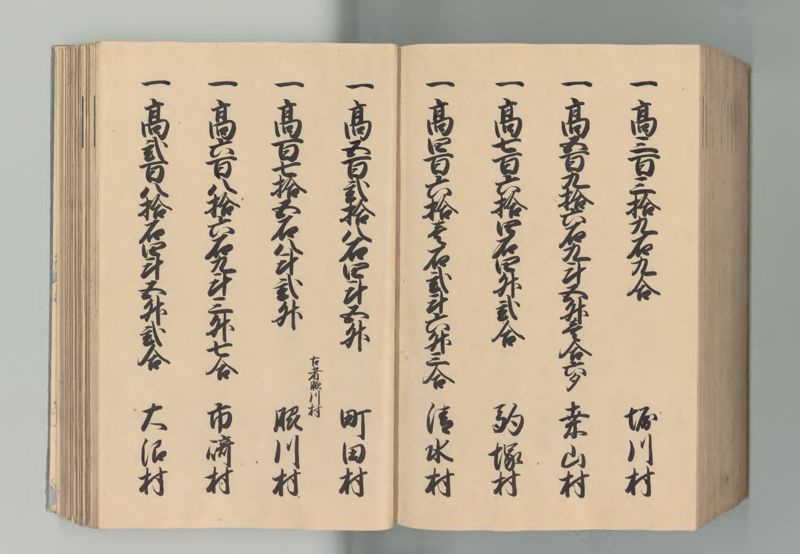 一高三百三拾九石九合 堀川村
一高五百九拾六石九斗五升壱合六夕 桒山村
一高七百六拾四石四升弐合 駒塚村
一高四百六拾壱石弐斗六升三合 清水村
一高五百弐拾八石四斗五升 町田村
古者 川村
一高百七拾五石八斗弐升 川村
一高六百八拾六石九斗三升七合 市 村
一高弐百八拾石四斗五升弐合 大沼村